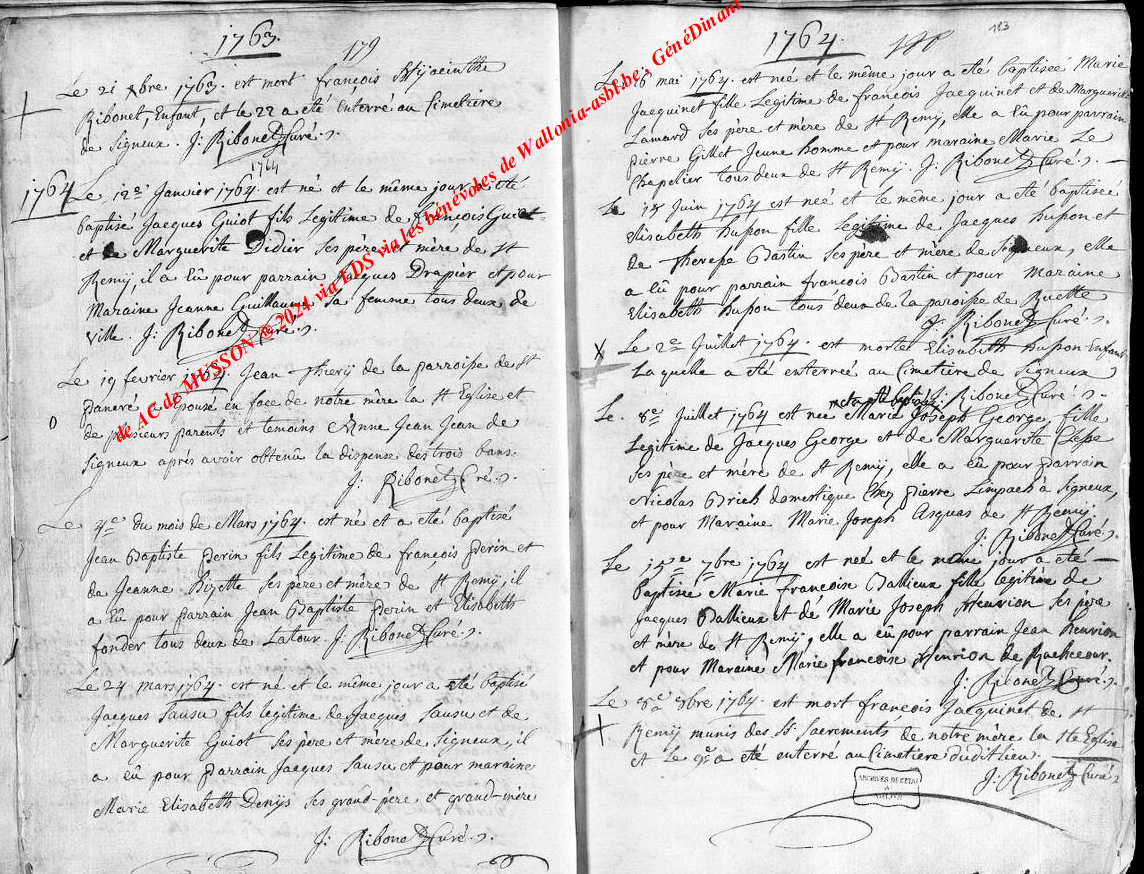 1763.
179
Le 21 xbre 1763. est mort françois Hyacinthe
Ribonet, Enfant, et le 22 a été Enterré au Cimetiere
de Signeux. J: Ribonet Curé.
1764
1764
Le 12e Janvier 1764. est né et le même jour a été
baptisé Jacques Guiot fils Legitime de françois Guiot
et de Marguerite Didier ses père et mére, de St
Remy il a eû pour parrain Jacques Drapier et pour
Maraine Jeanne Guillaume sa femme tous deux de
ville. J. Ribonet Curé.
Le 19 fevrier 1764 Jean Thiery de la parroisse de St
a Epousé en face de notre mere la St Eglise et
de plusieurs parents et temoins Anne Jean Jean de
Signeux aprés avoir obtenû la dispense des trois bans.
J: Ribonet Cré.
Le 4e du mois de Mars 1764. est né et a été baptisé
Jean Baptiste Perin fils Legitime de françois Perin et
de Jeanne Bizette ses pere et mére de St Remy, il
a eû pour Parrain Jean Baptiste Perin et Elisabeth
fonder tous deux de Latour. J. Ribonet Curé.
Le 24 mars 1764. est né et le même jour a été baptisé
Jacques Sausu fils legitime de Jacques Sausu et de
Marguerite Guiot ses pere et mère de Signeux, il
a eû pour Parrain Jacques Sausu et pour maraine
Marie Elisabeth Denys ses grand-père et grand-mère
J: Ribonet Curé.
1764.
183
Le 16 mai 1764. est née et le même jour a été baptiseé Marie
Jacquinet fille Legitime de françois Jacquinet et de Marguerite
Lamard ses père et mère de St Remy, elle a eû pour parrain
pierre Gillet Jeune homme et pour maraine Marie Le
Chapelier tous deux de St Remy. J. Ribonet Curé.
Le 18 Juin 1764 est née et le même jour a été baptiseé
Elisabeth Husson fille legitime de Jacques Husson et
de Therese Bastin ses père et mère de Signeux elle
a eû pour parrain françois Bastin et pour Maraine
Elisabeth Husson tous deux de la paroisse de Ruette
J. Ribonet Curé.
Le 2e Juillet 1764. est morte Elisabeth Husson Enfant
Laquelle a été enterreé au Cimetiere de Signeux
J. Ribonet Curé.
et a été baptisée
Le 8e Juillet 1764 est née Marie Joseph George fille
Legitime de Jacques George et de Marguerite Cleße
ses père et mére de St Remy, elle a eû pour Parrain
Nicolas Brich domestique Chez Pierre Limpach à Signeux,
et pour Maraine Marie Joseph Asquas de St Remy.
J: Ribonet Curé.
Le 7bre 1764 est neé et le même jour a été
baptisée Marie francoise Ballieux fille legitime de
Jacques Ballieux et de Marie Joseph Henrion ses père
et mère de St Remy, elle a eû pour parrain Jean Henrion
et pour Maraine Marie francoise Henrion de Rachecour.
J. Ribonet Curé.
Le 8e 8bre 1764. est mort françois Jacquinet de St
Remy munis des St Sacrements de notre mère la Ste Eglise
et Le 9e a été enterré au Cimetiere duditlieu.
J. Ribonet Curé
ARCHIVES DE L'ETAT
A
ARLON
de AC de MUSSON © 2024 via EDS via les bénévoles de Wallonia-asbl.be : GénéDinant